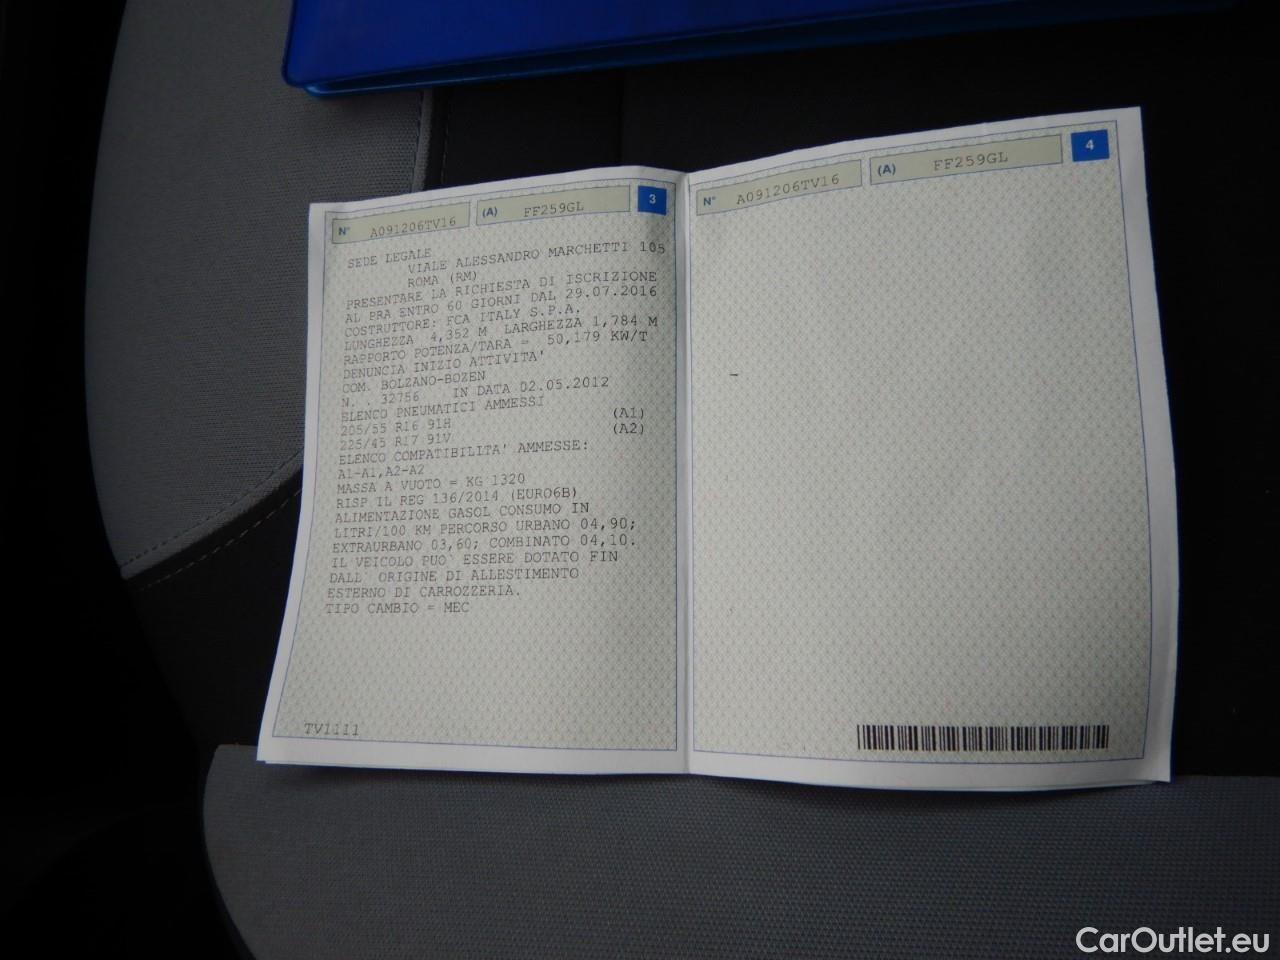 N° A091206TV16 (A) FF259GL 3
SEDE LEGALE
VIALE ALESSANDRO MARCHETTI 105
ROMA (RM)
PRESENTARE LA RICHIESTA DI ISCRIZIONE
AL PRA ENTRO 60 GIORNI DAL 29.07.2016
COSTRUTTORE: FCA ITALY S.P.A.
LUNGHEZZA 4,352 M LARGHEZZA 1,784 M
RAPPORTO POTENZA/TARA = 50,179 KW/T
DENUNCIA INIZIO ATTIVITA'
COM. BOLZANO-BOZEN
N. . 32756 IN DATA 02.05.2012
ELENCO PNEUMATICI AMMESSI
205/55 R16 91H (A1)
225/45 R17 91V (A2)
ELENCO COMPATIBILITA' AMMESSE:
A1-A1,A2-A2
MASSA A VUOTO = KG 1320
RISP IL REG 136/2014 (EURO6B)
ALIMENTAZIONE GASOL CONSUMO IN
LITRI/100 KM PERCORSO URBANO 04,90;
EXTRAURBANO 03,60; COMBINATO 04,10.
IL VEICOLO PUO` ESSERE DOTATO FIN
DALL` ORIGINE DI ALLESTIMENTO
ESTERNO DI CARROZZERIA.
TIPO CAMBIO = MEC
TV1111
N° A091206TV16 (A) FF259GL 4
–
CarOutlet.eu